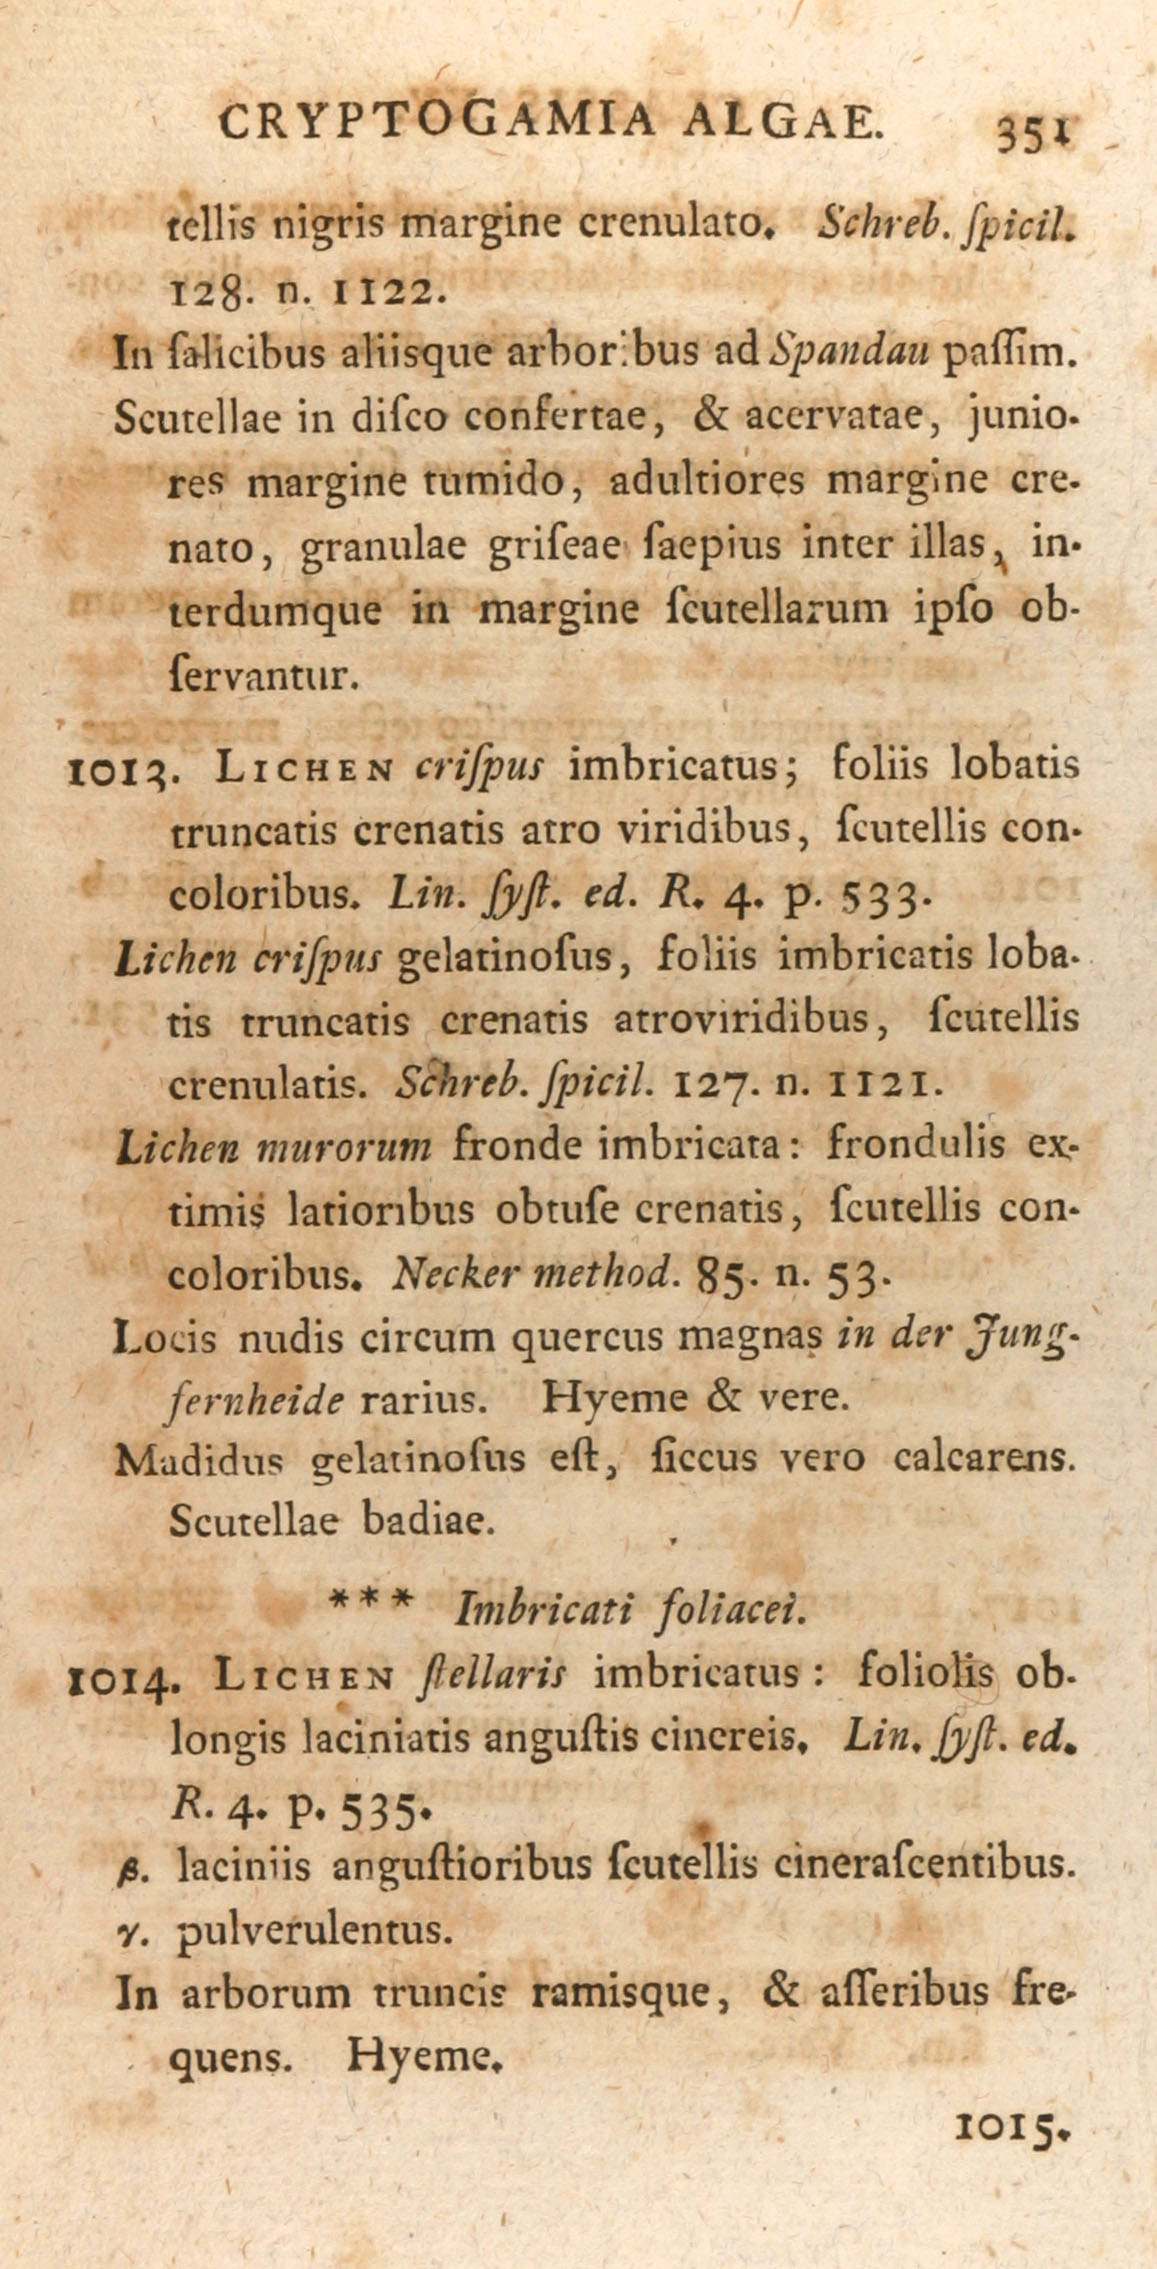 CRYPTOGAMIA ALGAE. 351
tellis nigris margine crenulato. Schreb. ſpicil.
128. n. 1122.
In ſalicibus aliisque arboribus ad Spandau paſſim.
Scutellae in diſco confertae, & acervatae, junio-
res margine tumido, adultiores margine cre-
nato, granulae griſeae ſaepius inter illas, in-
terdumque in margine ſcutellarum ipſo ob-
ſervantur.
1013. LICHEN criſpus imbricatus; foliis lobatis
truncatis crenatis atro viridibus, ſcutellis con-
coloribus. Lin. ſyſt. ed. R. 4. p. 533.
Lichen criſpus gelatinoſus, foliis imbricatis loba-
tis truncatis crenatis atroviridibus, ſcutellis
crenulatis. Schreb. ſpicil. 127. n. 1121.
Lichen murorum fronde imbricata: frondulis ex-
timis latioribus obtuſe crenatis, ſcutellis con-
coloribus. Necker method. 85. n. 53.
Locis nudis circum quercus magnas in der Jung-
fernheide rarius. Hyeme & vere.
Madidus gelatinoſus eſt, ſiccus vero calcarens.
Scutellae badiae.
*** Imbricati foliacei.
1014. LICHEN ſtellaris imbricatus: foliolis ob-
longis laciniatis anguſtis cinereis. Lin. ſyſt. ed.
R. 4. p. 535.
β. laciniis anguſtioribus ſcutellis cineraſcentibus.
γ. pulverulentus.
In arborum truncis ramisque, & aſſeribus fre-
quens. Hyeme.
1015.